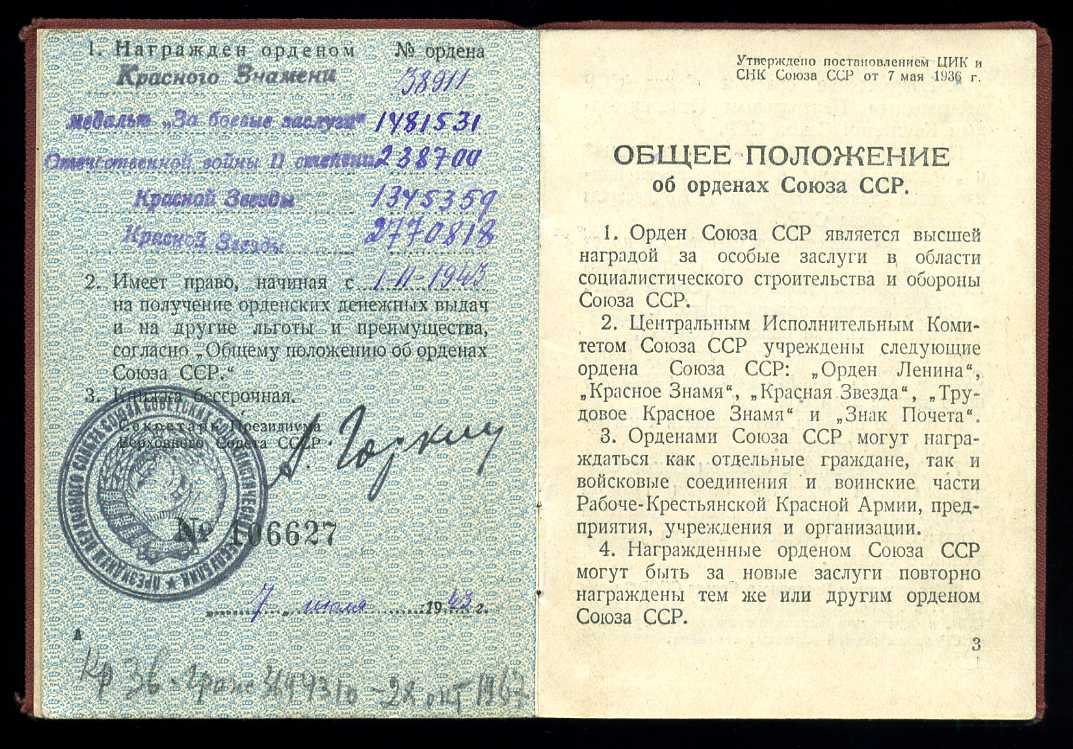 1. Награжден орденом № ордена
Красного Знамени 38911
медалью „За боевые заслуги“ 1481531
Отечественной войны II степени 238700
Красной Звезды 1345359
Красной Звезды 2770818
2. Имеет право, начиная с 1-II-1943
на получение орденских денежных выдач
и на другие льготы и преимущества,
согласно „Общему положению об орденах
Союза ССР.“
3. Книжка бессрочная.
Секретарь Президиума
Верховного Совета СССР
А. Горкин
№ 106627
7 июля 1943 г.
А
Кр Зв - 28 окт 1967
Утверждено постановлением ЦИК и
СНК Союза ССР от 7 мая 1936 г.
ОБЩЕЕ ПОЛОЖЕНИЕ
об орденах Союза ССР.
1. Орден Союза ССР является высшей
наградой за особые заслуги в области
социалистического строительства и обороны
Союза ССР.
2. Центральным Исполнительным Коми-
тетом Союза ССР учреждены следующие
ордена Союза ССР: „Орден Ленина“,
„Красное Знамя“, „Красная Звезда“, „Тру-
довое Красное Знамя“ и „Знак Почета“.
3. Орденами Союза ССР могут награ-
ждаться как отдельные граждане, так и
войсковые соединения и воинские части
Рабоче-Крестьянской Красной Армии, пред-
приятия, учреждения и организации.
4. Награжденные орденом Союза ССР
могут быть за новые заслуги повторно
награждены тем же или другим орденом
Союза ССР.
3